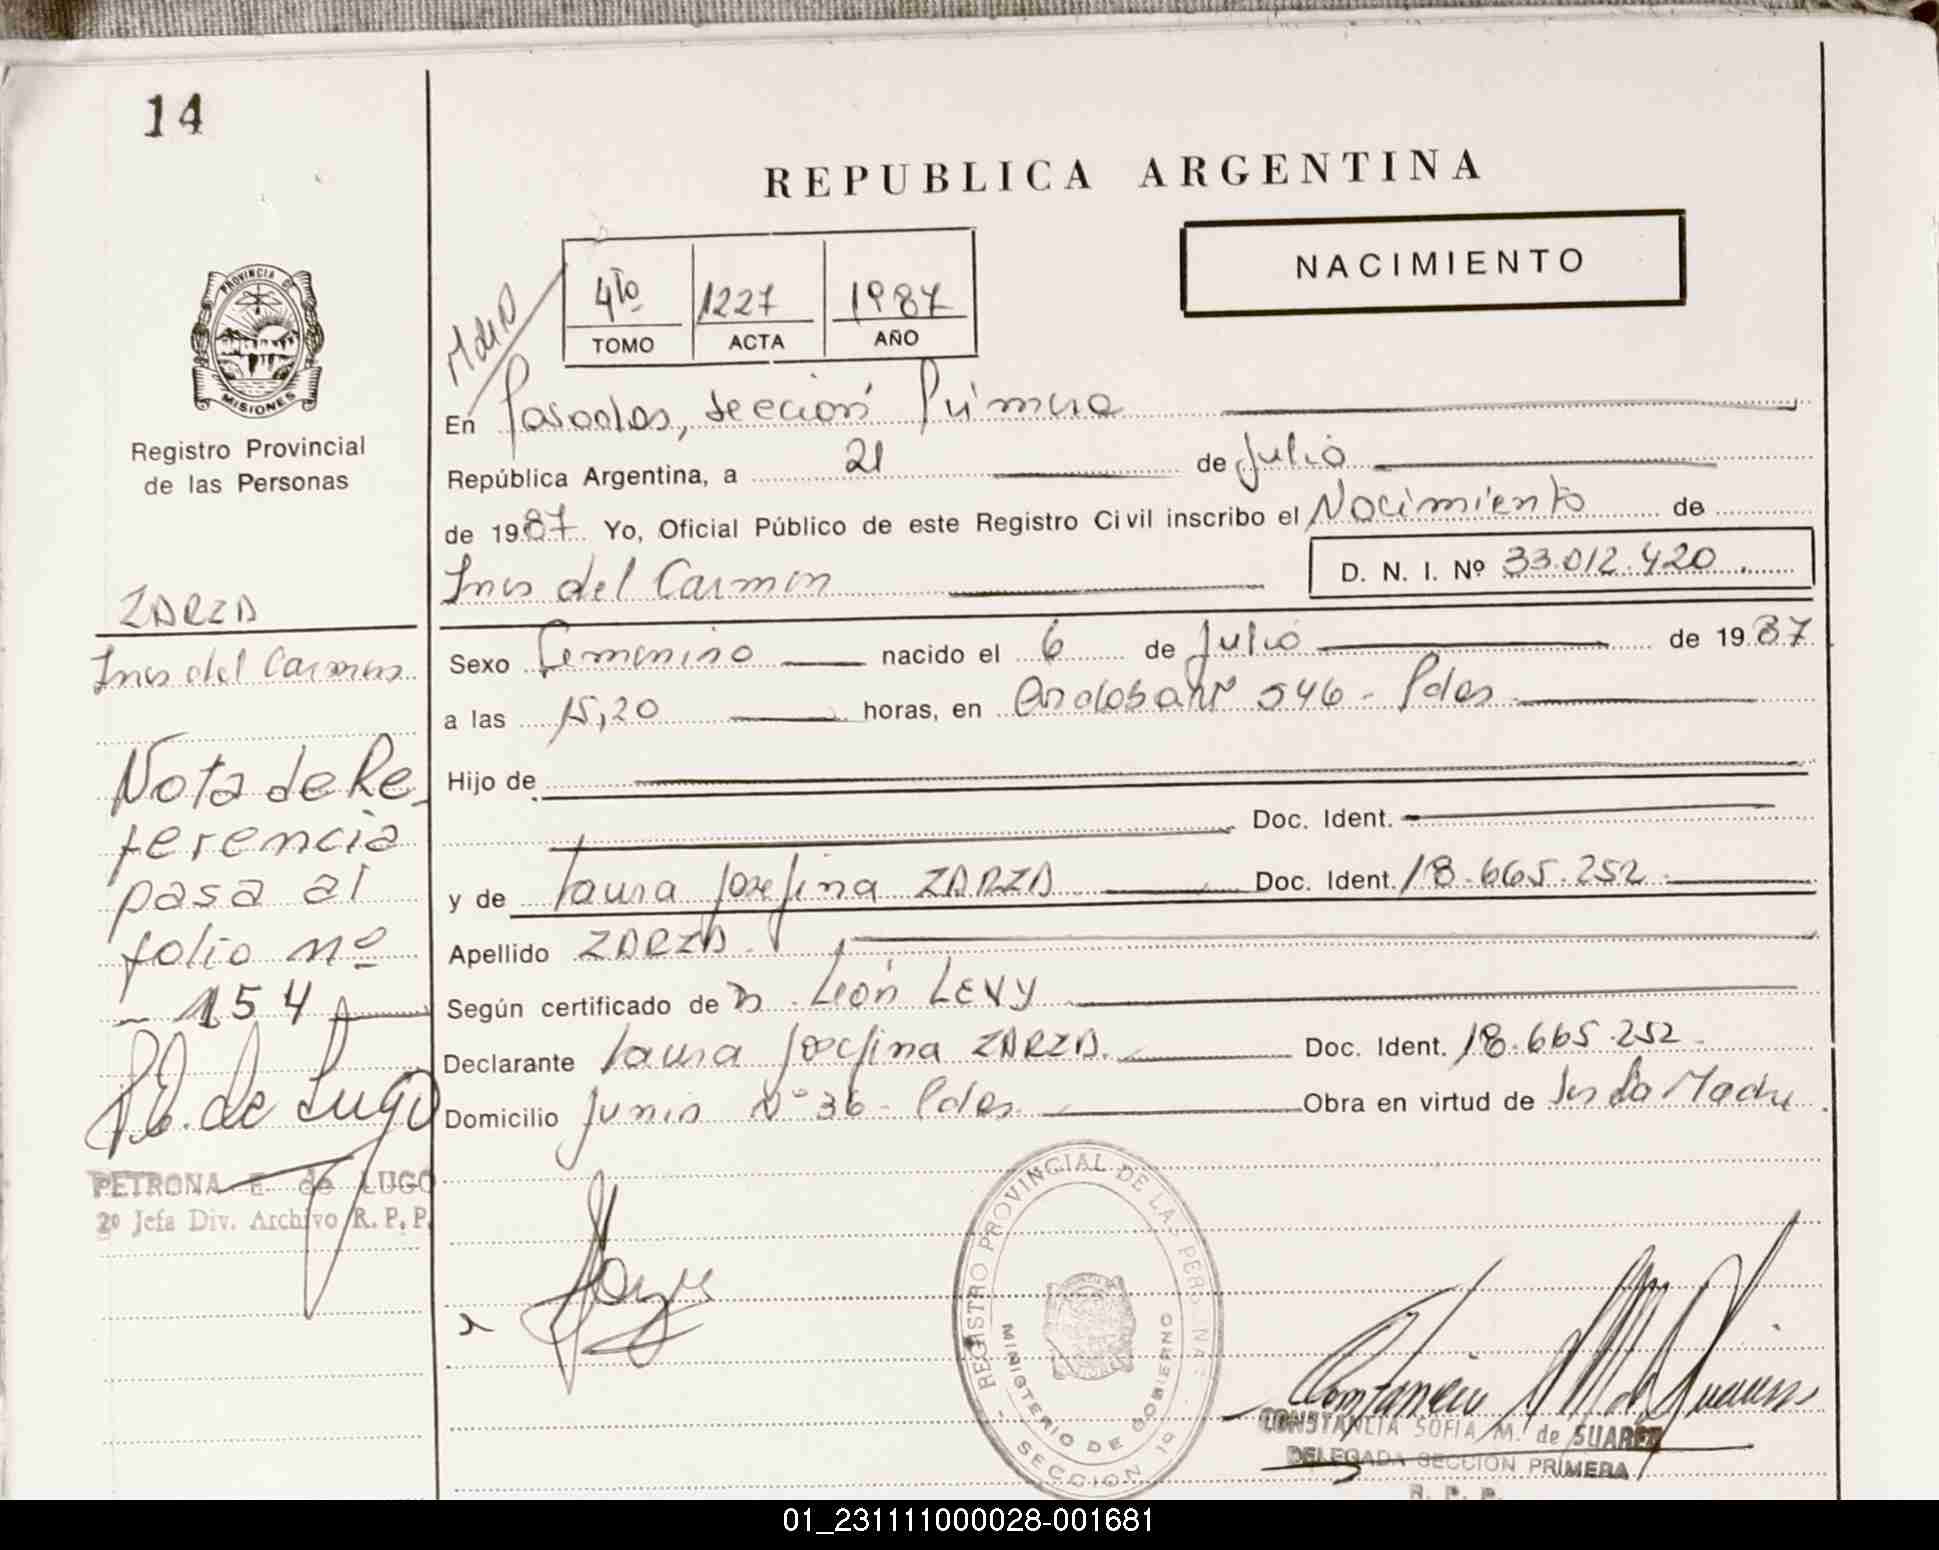 14
REPUBLICA ARGENTINA
NACIMIENTO
4to 1227 1987
TOMO ACTA AÑO
PROVINCIA DE
MISIONES
Registro Provincial
de las Personas
En Posadas, Sección Primera
República Argentina, a 21 de Julio
de 1987 Yo, Oficial Público de este Registro Civil inscribo el Nacimiento de
Ines del Carmen D. N. I. Nº 33.012.420
ZARZA
Ines del Carmen
Sexo Femenino nacido el 6 de Julio de 1987
a las 15,20 horas, en 546 - Pdas
Hijo de
Doc. Ident.
y de Laura Josefina ZARZA Doc. Ident. 18.665.252
Apellido ZARZA
Según certificado de León LEVY
Declarante Laura Josefina ZARZA. Doc. Ident. 18.665.252
Domicilio Junin Nº 36 - Pdas Obra en virtud de Ser La Madre
Nota de Re-
ferencia
pasa al
folio nº
- 154
P.E. de Lugo
PETRONA E. de LUGO
2º Jefa Div. Archivo R. P. P.
REGISTRO PROVINCIAL DE LAS PERSONAS
MINISTERIO DE GOBIERNO
SECCION 1ª
CONSTANCIA SOFIA M. de SUAREZ
DELEGADA SECCION PRIMERA
R. P. P.
01_231111000028-001681